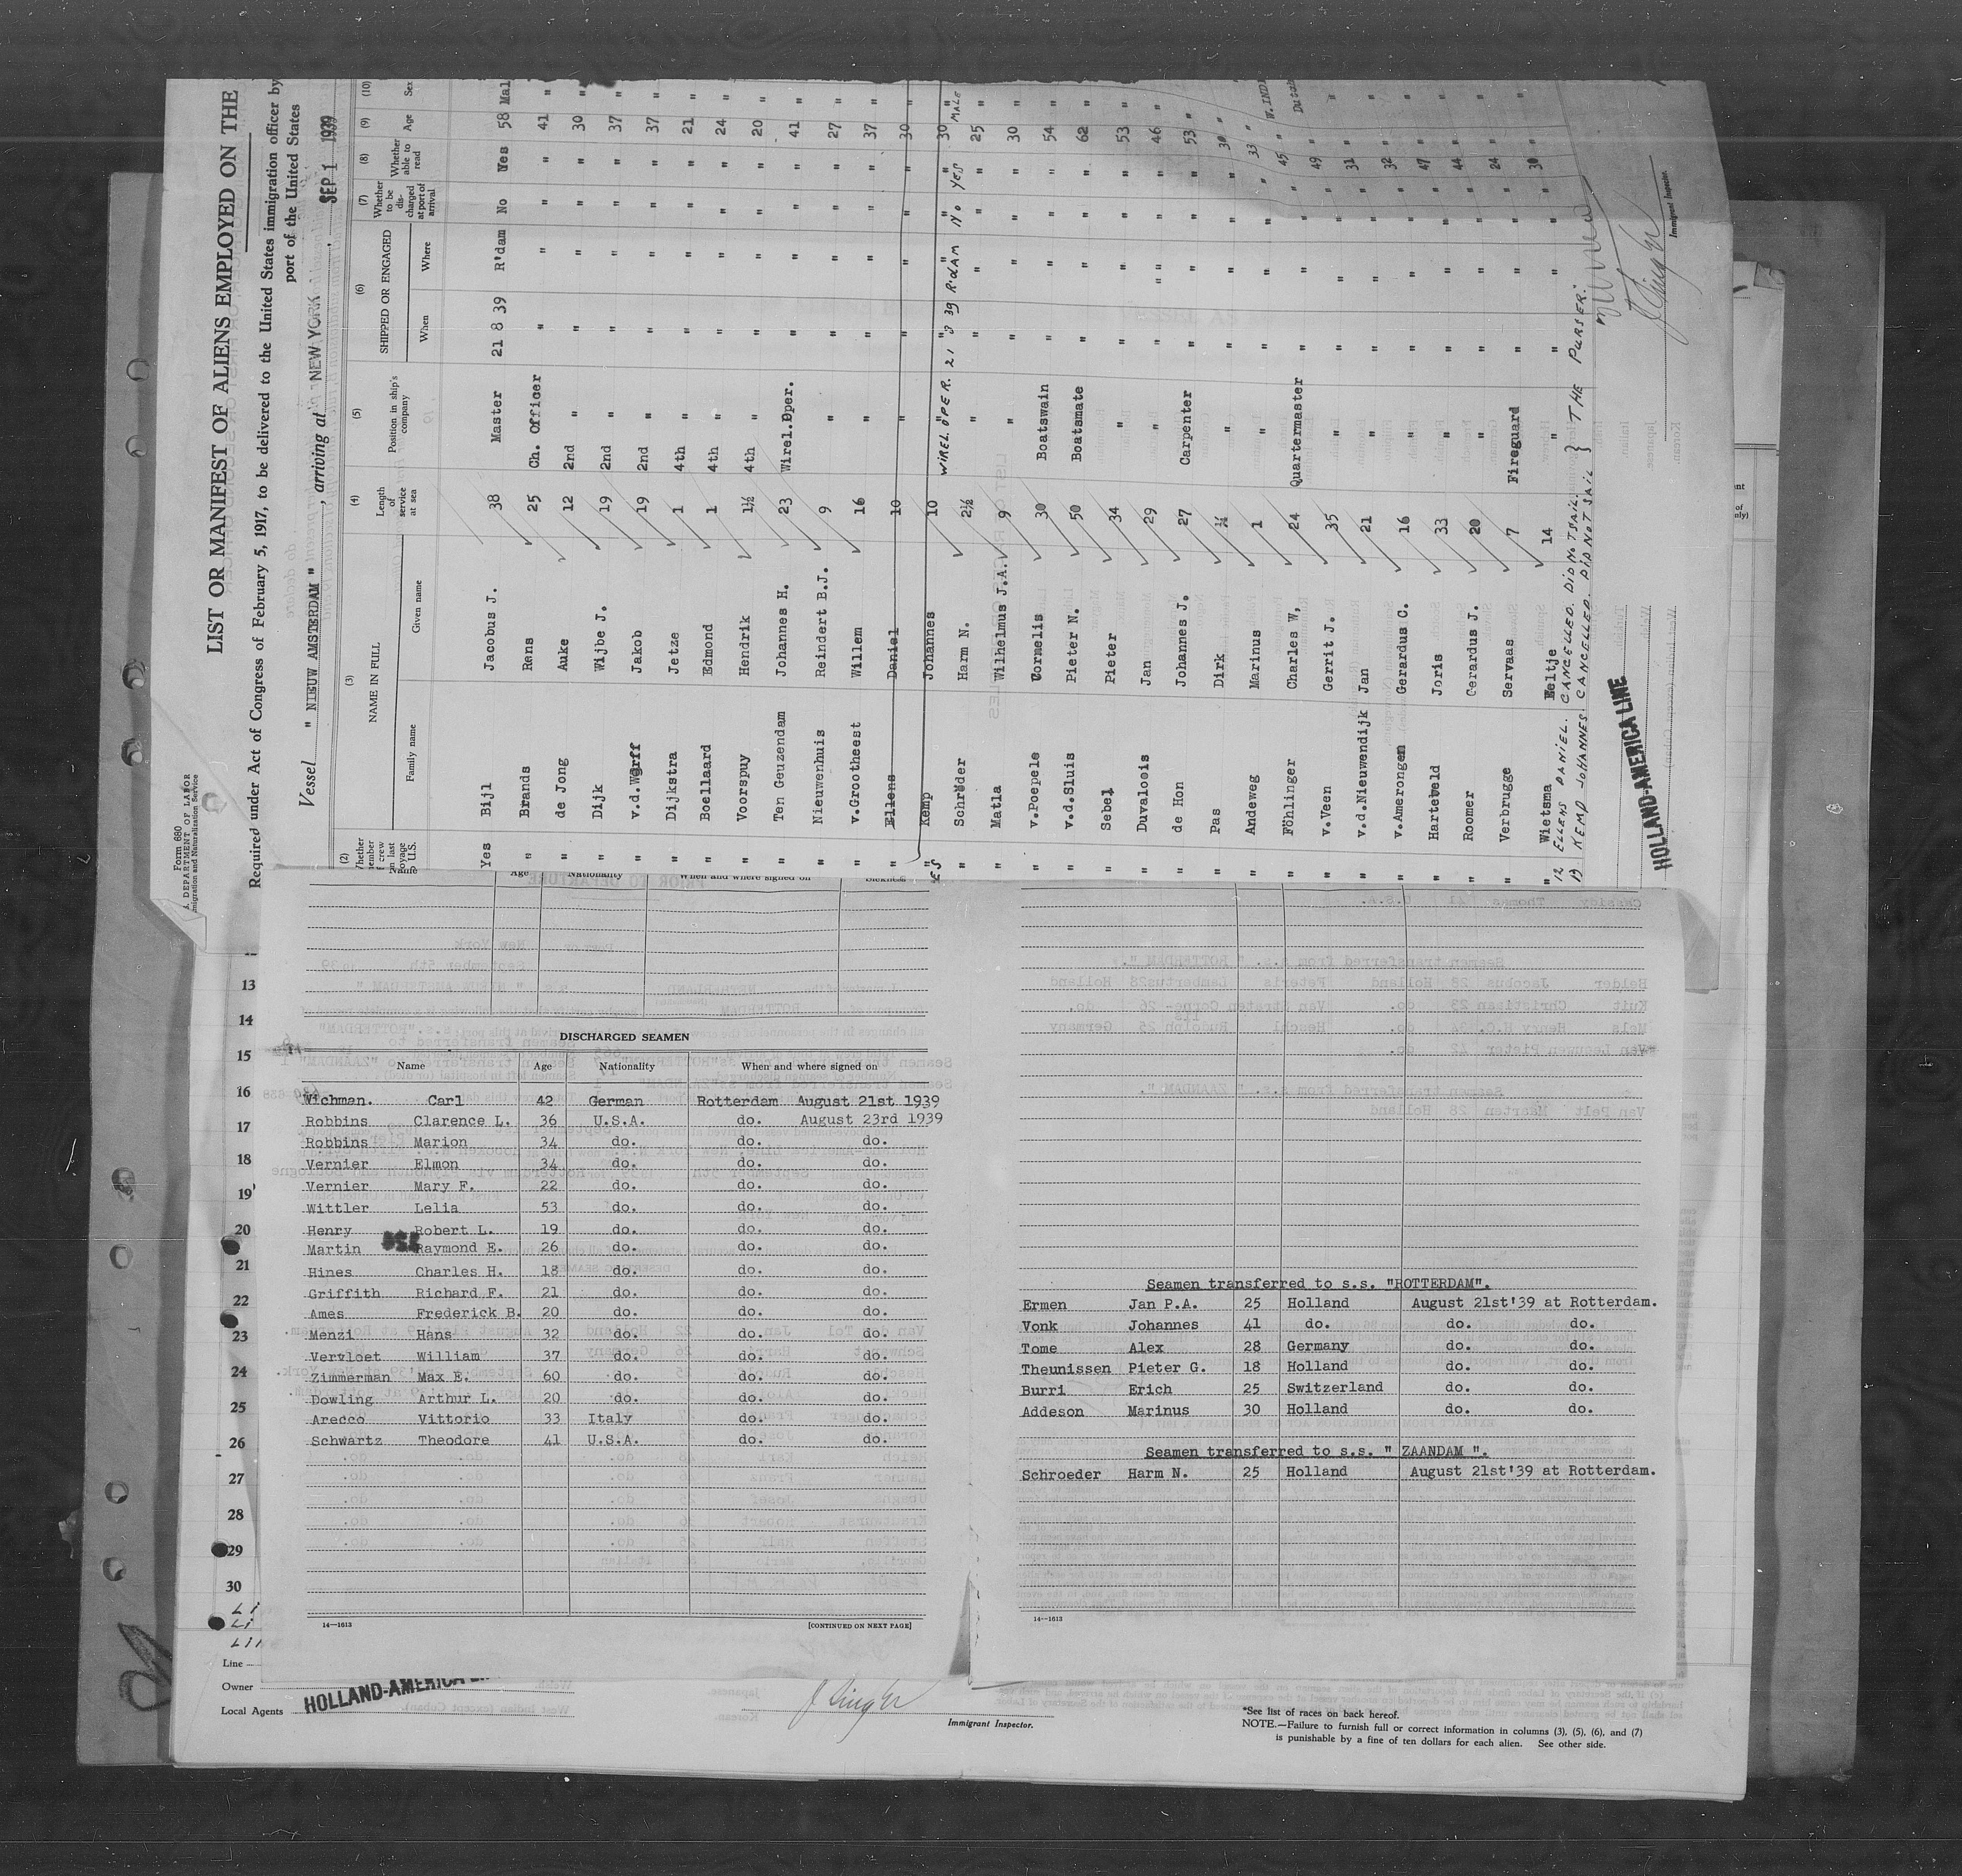 Form 680
U. S. DEPARTMENT OF LABOR
Immigration and Naturalization Service
LIST OR MANIFEST OF ALIENS EMPLOYED ON THE
Required under Act of Congress of February 5, 1917, to be delivered to the United States immigration officer by
port of the United States
Vessel " NIEUW AMSTERDAM " , arriving at NEW YORK . SEP 1 1939
(2) (3) (4) (5) (6) (7) (8) (9) (10)
NAME IN FULL Length of service at sea Position in ship's company SHIPPED OR ENGAGED Whether to be discharged at port of arrival Whether able to read Age Sex
Family name Given name When Where
Yes Bijl Jacobus J. 38 Master 21 8 39 R'dam No Yes 58 Mal
" Brands Rens 25 Ch. Officer " " " " 41 "
" de Jong Auke 12 2nd " " " " " 30 "
" Dijk Wijbe J. 19 2nd " " " " " 37 "
" v.d.Werff Jakob 19 2nd " " " " " 37 "
" Dijkstra Jetze 1 4th " " " " " 21 "
" Boellaard Edmond 1 4th " " " " " 24 "
" Voorspuy Hendrik 1½ 4th " " " " " 20 "
" Ten Geuzendam Johannes H. 23 Wirel.Oper. " " " " 41 "
" Nieuwenhuis Reindert B.J. 9 " " " " " 27 "
" v.Grootheest Willem 16 " " " " " 37 "
" Ellens Daniel 10 " " " " " 30 "
" Kemp Johannes 10 " " " " " 30 "
YES Schröder Harm N. 2½ WIREL. OPER. 21 8 39 RDAM NO YES 25 MALE
" Matla Wilhelmus J.A. 9 " " " " " 30 "
" v.Poepele Cornelis 30 Boatswain " " " " 54 "
" v.d.Sluis Pieter N. 50 Boatsmate " " " " 62 "
" Sebel Pieter 34 " " " " " 53 "
" Duvaloois Jan 29 " " " " " 46 "
" de Hon Johannes J. 27 Carpenter " " " " 53 "
" Pas Dirk ½ " " " " " 30 "
" Andeweg Marinus 1 " " " " " 33 "
" Föhlinger Charles W, 24 Quartermaster " " " " 45 " W. IND
" v.Veen Gerrit J. 35 " " " " " 49 "
" v.d.Nieuwendijk Jan 21 " " " " " 31 "
" v.Amerongen Gerardus C. 16 " " " " " 32 "
" Harteveld Joris 33 " " " " " 47 "
" Roomer Gerardus J. 20 " " " " " 44 "
" Verbrugge Servaas 7 Fireguard " " " " 24 "
" Wietsma Eeltje 14 " " " " " 30 "
12 ELLENS DANIEL. CANCELLED. DID NOT SAIL.
13 KEMP JOHANNES. CANCELLED. DID NOT SAIL } THE PURSER:
HOLLAND-AMERICA LINE
Immigrant Inspector.
Name Age Nationality When and where signed on
13
14
15
16
17
18
19
20
21
22
23
24
25
26
27
28
29
30
DISCHARGED SEAMEN
Name Age Nationality When and where signed on
Wichman. Carl 42 German Rotterdam August 21st 1939
Robbins Clarence L. 36 U.S.A. do. August 23rd 1939
Robbins Marion 34 do. do. do.
Vernier Elmon 34 do. do. do.
Vernier Mary F. 22 do. do. do.
Wittler Lelia 53 do. do. do.
Henry Robert L. 19 do. do. do.
Martin Raymond E. 26 do. do. do.
Hines Charles H. 18 do. do. do.
Griffith Richard F. 21 do. do. do.
Ames Frederick B. 20 do. do. do.
Menzi Hans 32 do. do. do.
Vervloet William 37 do. do. do.
Zimmerman Max E. 60 do. do. do.
Dowling Arthur L. 20 do. do. do.
Arecco Vittorio 33 Italy do. do.
Schwartz Theodore 41 U.S.A. do. do.
14—1613 [CONTINUED ON NEXT PAGE]
Seamen transferred to s.s. "ROTTERDAM".
Ermen Jan P.A. 25 Holland August 21st'39 at Rotterdam.
Vonk Johannes 41 do. do. do.
Tome Alex 28 Germany do. do.
Theunissen Pieter G. 18 Holland do. do.
Burri Erich 25 Switzerland do. do.
Addeson Marinus 30 Holland do. do.
Seamen transferred to s.s. " ZAANDAM ".
Schroeder Harm N. 25 Holland August 21st'39 at Rotterdam.
14—1613
Line
Owner
Local Agents HOLLAND-AMERICA LINE
Immigrant Inspector.
*See list of races on back hereof.
NOTE.—Failure to furnish full or correct information in columns (3), (5), (6), and (7)
is punishable by a fine of ten dollars for each alien. See other side.